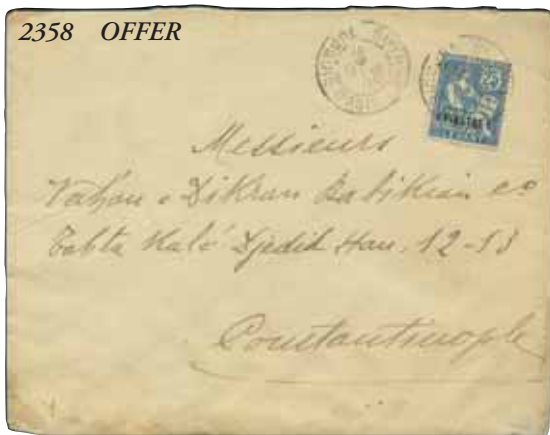 2358 OFFER
25
1 PIASTRE 1
LEVANT
Messieurs
Vahan & Dikran Babikian Co
Tahta Kalé Djedid Han. 12-13
Constantinople